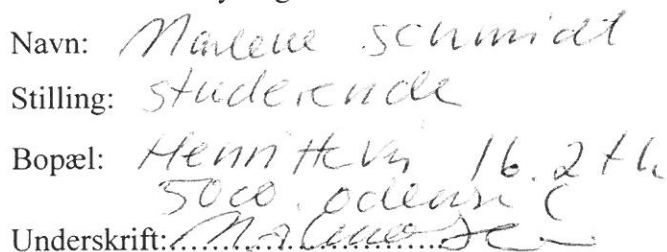 Navn: Marlene Schmidt
Stilling: studerende
Bopæl: 16. 2 th
5000. odense C
Underskrift: